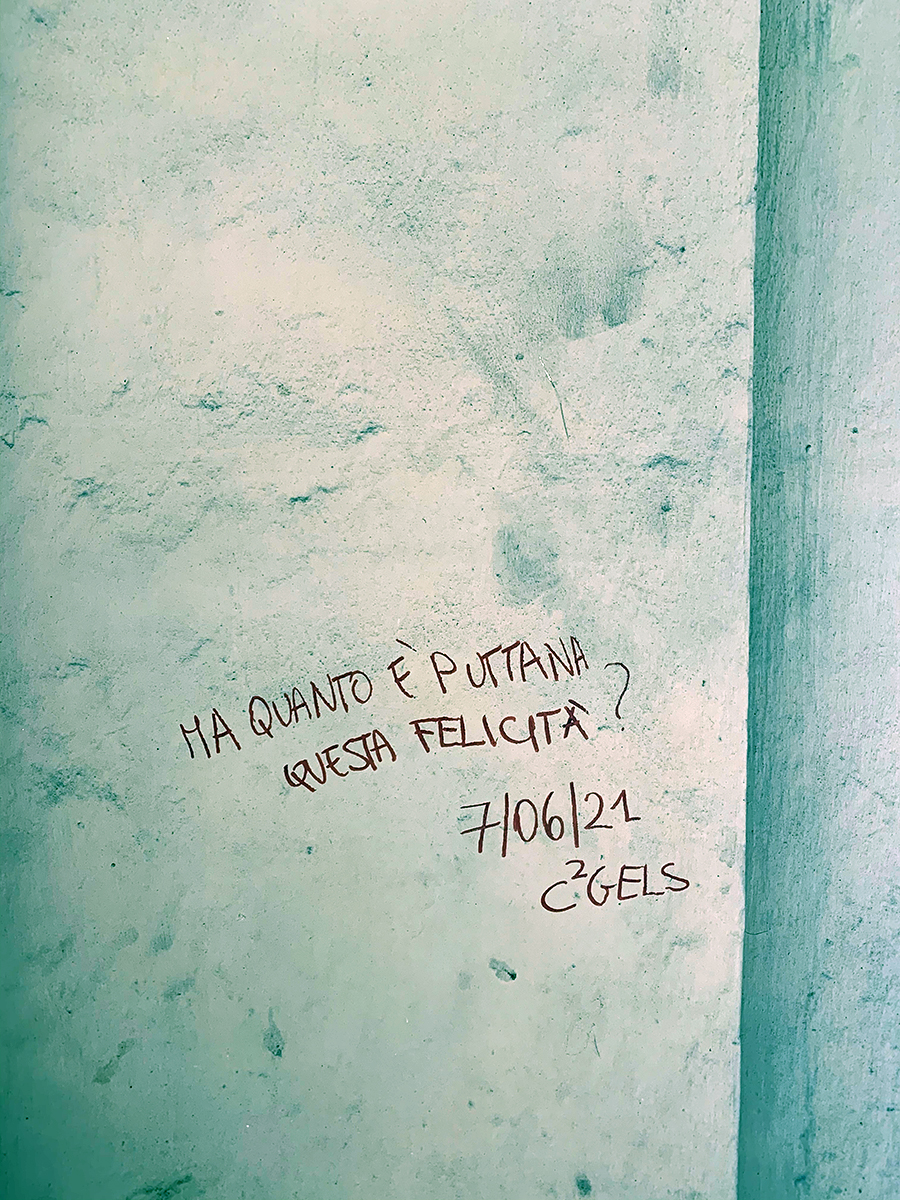 MA QUANTO È PUTTANA
QUESTA FELICITÀ?
7/06/21
C²GELS